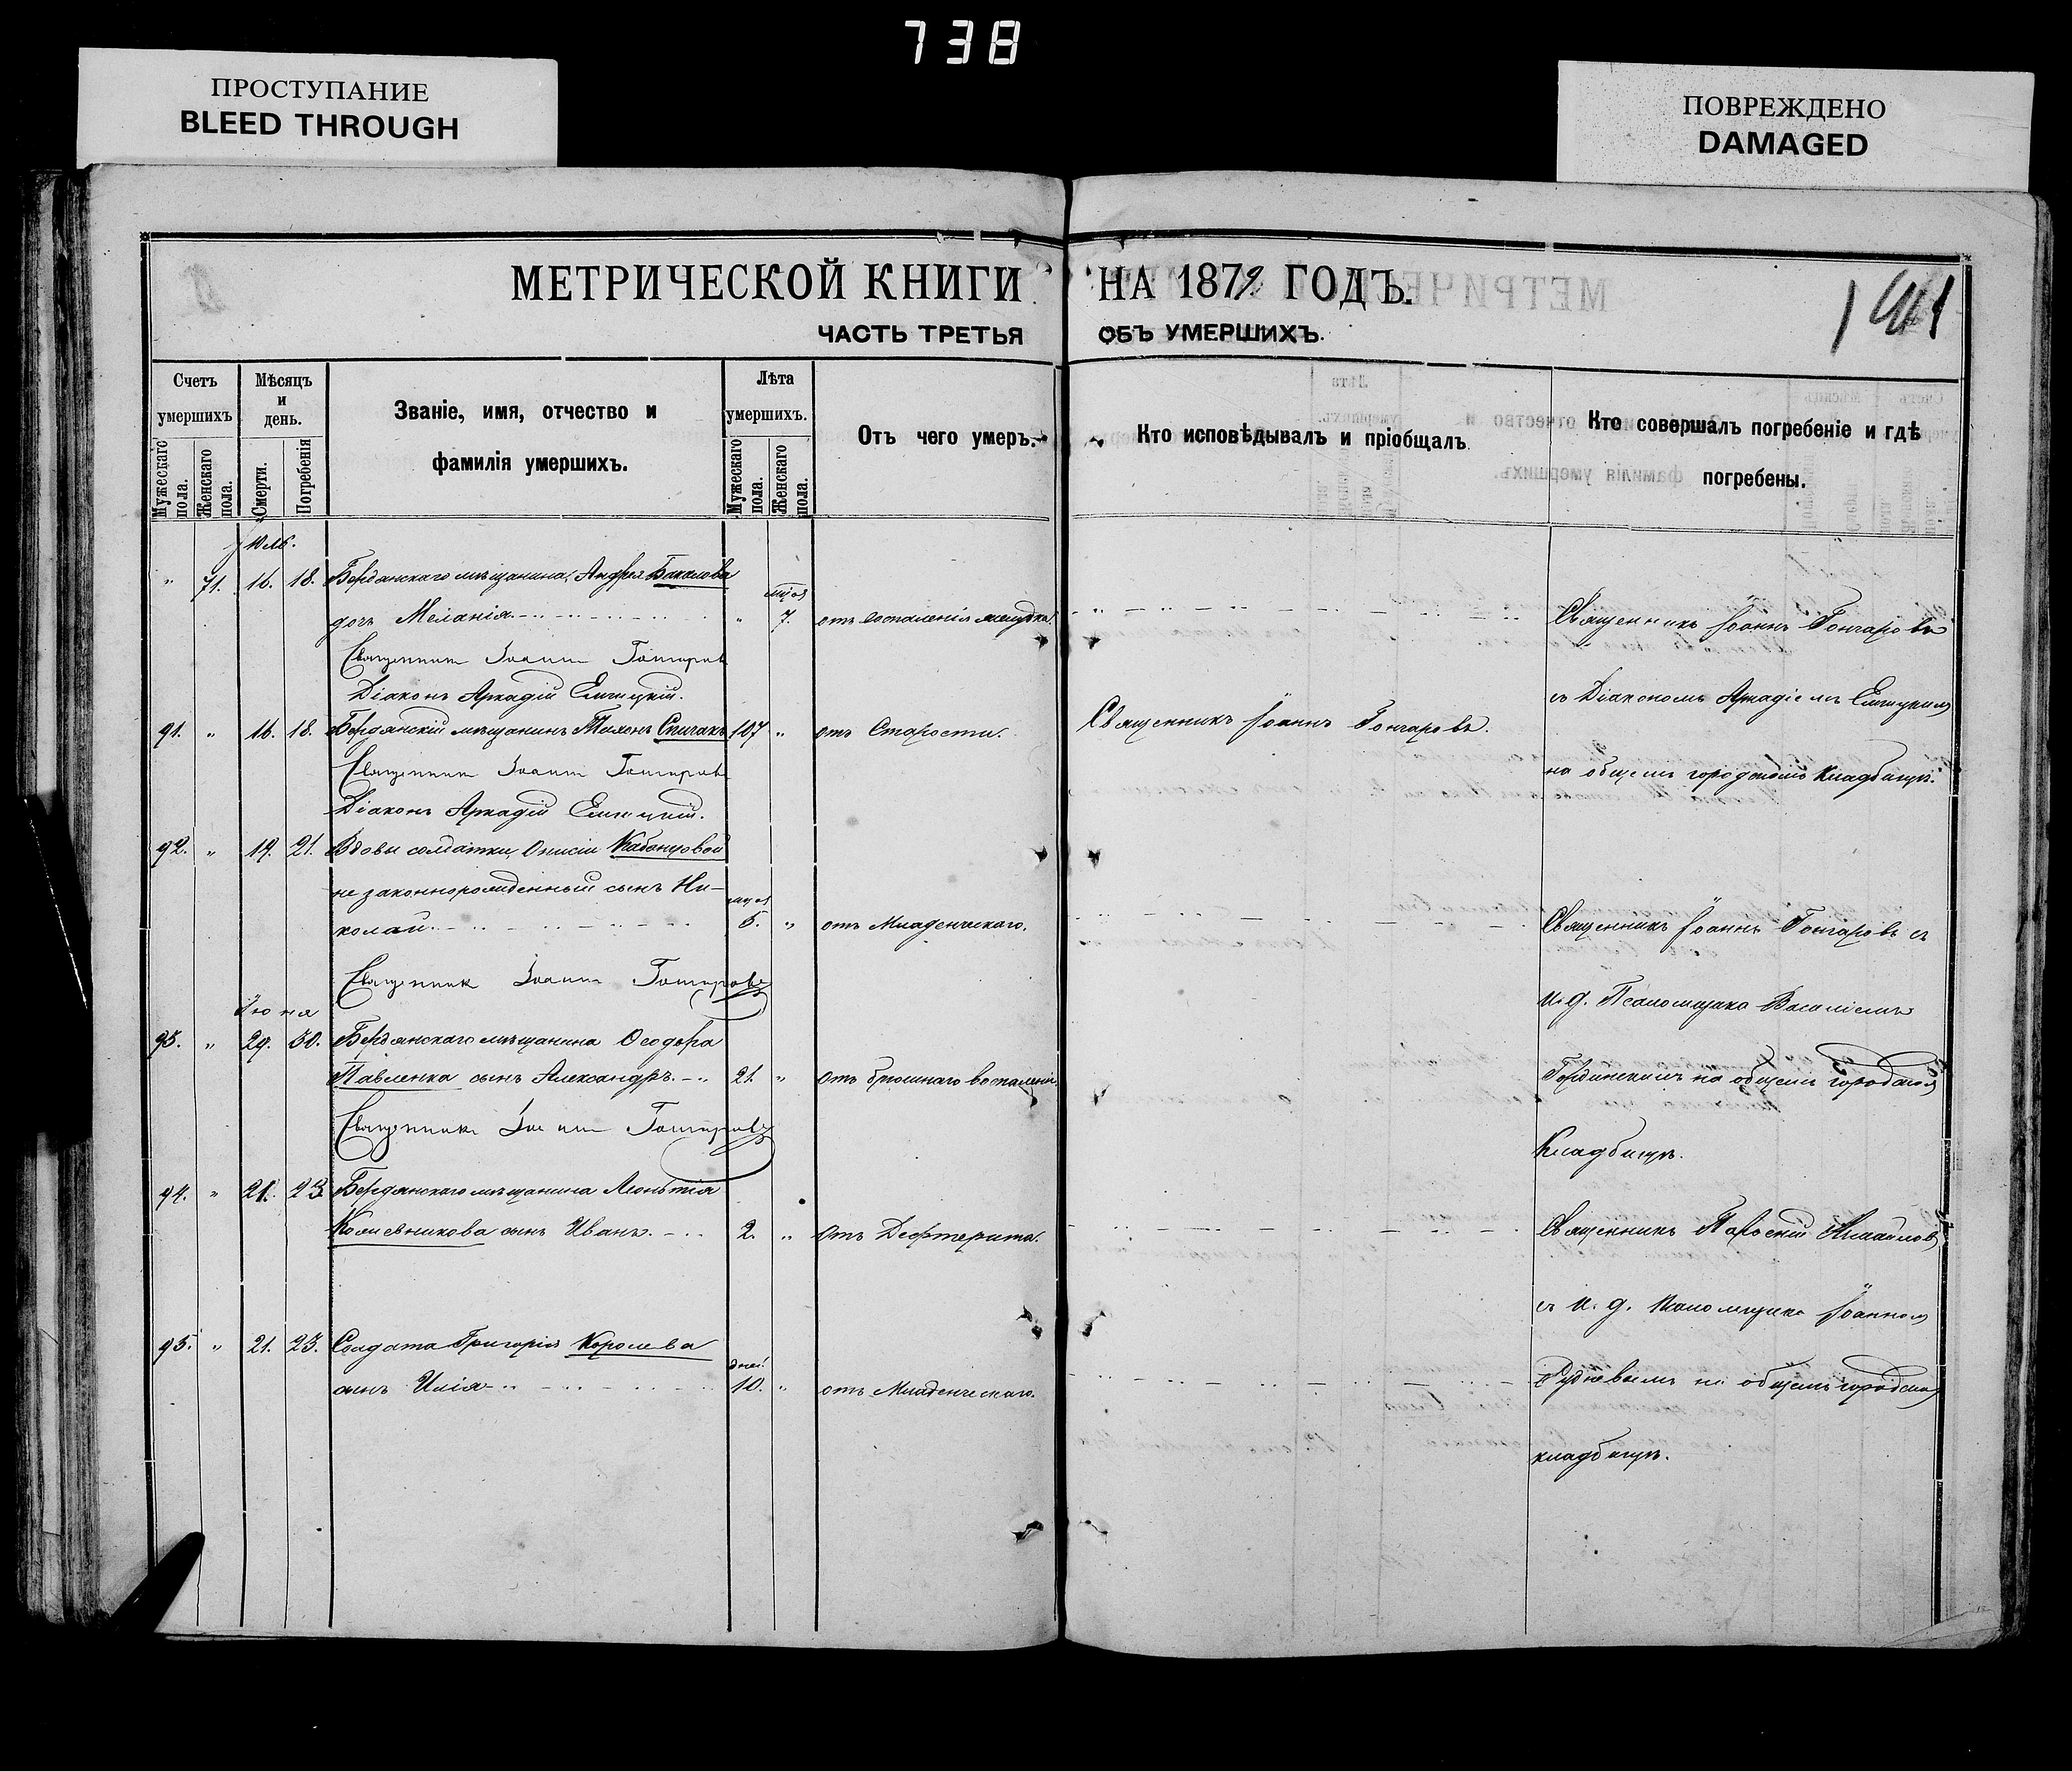 738
ПРОСТУПАНИЕ
BLEED THROUGH
ПОВРЕЖДЕНО
DAMAGED
МЕТРИЧЕСКОЙ КНИГИ НА 1879 ГОДЪ.
ЧАСТЬ ТРЕТЬЯ ОБЪ УМЕРШИХЪ.
Счетъ умершихъ
Мужескаго пола.
Женскаго пола.
Мѣсяцъ и день.
Смерти.
Погребенія
Званіе, имя, отчество и
фамилія умершихъ.
Лѣта умершихъ.
Мужескаго пола.
Женскаго пола.
Отъ чего умеръ.
Кто исповѣдывалъ и пріобщалъ
Кто совершалъ погребеніе и гдѣ
погребены.
Юль.
" 71. 16. 18. Бердянскаго мѣщанина, Андрея Бакалова
дочь Меланія " 7. отъ воспаленія желудка.
Священникъ Іоаннъ Гончаровъ
Священникъ Іоаннъ Гончаровъ
Діаконъ Аркадій Елецкій.
съ Діакономъ Аркадіемъ Елецкимъ
91. " 16. 18. Бердянскій мѣщанинъ Спичакъ 107 " отъ Старости. Священникъ Іоаннъ Гончаровъ.
на общемъ городскомъ кладбищѣ.
Священникъ Іоаннъ Гончаровъ
Діаконъ Аркадій Елецкій.
92. " 19. 21. Вдовы солдатки, Кабанцовой
незаконнорожденный сынъ Ни-
колай. 5. " отъ Младенческаго.
Священникъ Іоаннъ Гончаровъ съ
Священникъ Іоаннъ Гончаровъ
И. д. Псаломщика Василіемъ
Іюня
93. " 29. 30. Бердянскаго мѣщанина Ѳеодора
Павленка сынъ Александръ. 21. " отъ брюшнаго воспаленія
на общемъ городскомъ
Священникъ Іоаннъ Гончаровъ
Кладбищѣ.
94. " 21. 23 Бердянскаго мѣщанина Леонтія
Кожевникова сынъ Иванъ. 2. " отъ Дефтерита.
Священникъ
съ И. д. Псаломщика Іоанномъ
95. " 21. 23. Солдата Григорія Королева
дней
сынъ Илія 10. " отъ Младенческаго.
на общемъ городскомъ
кладбищѣ.